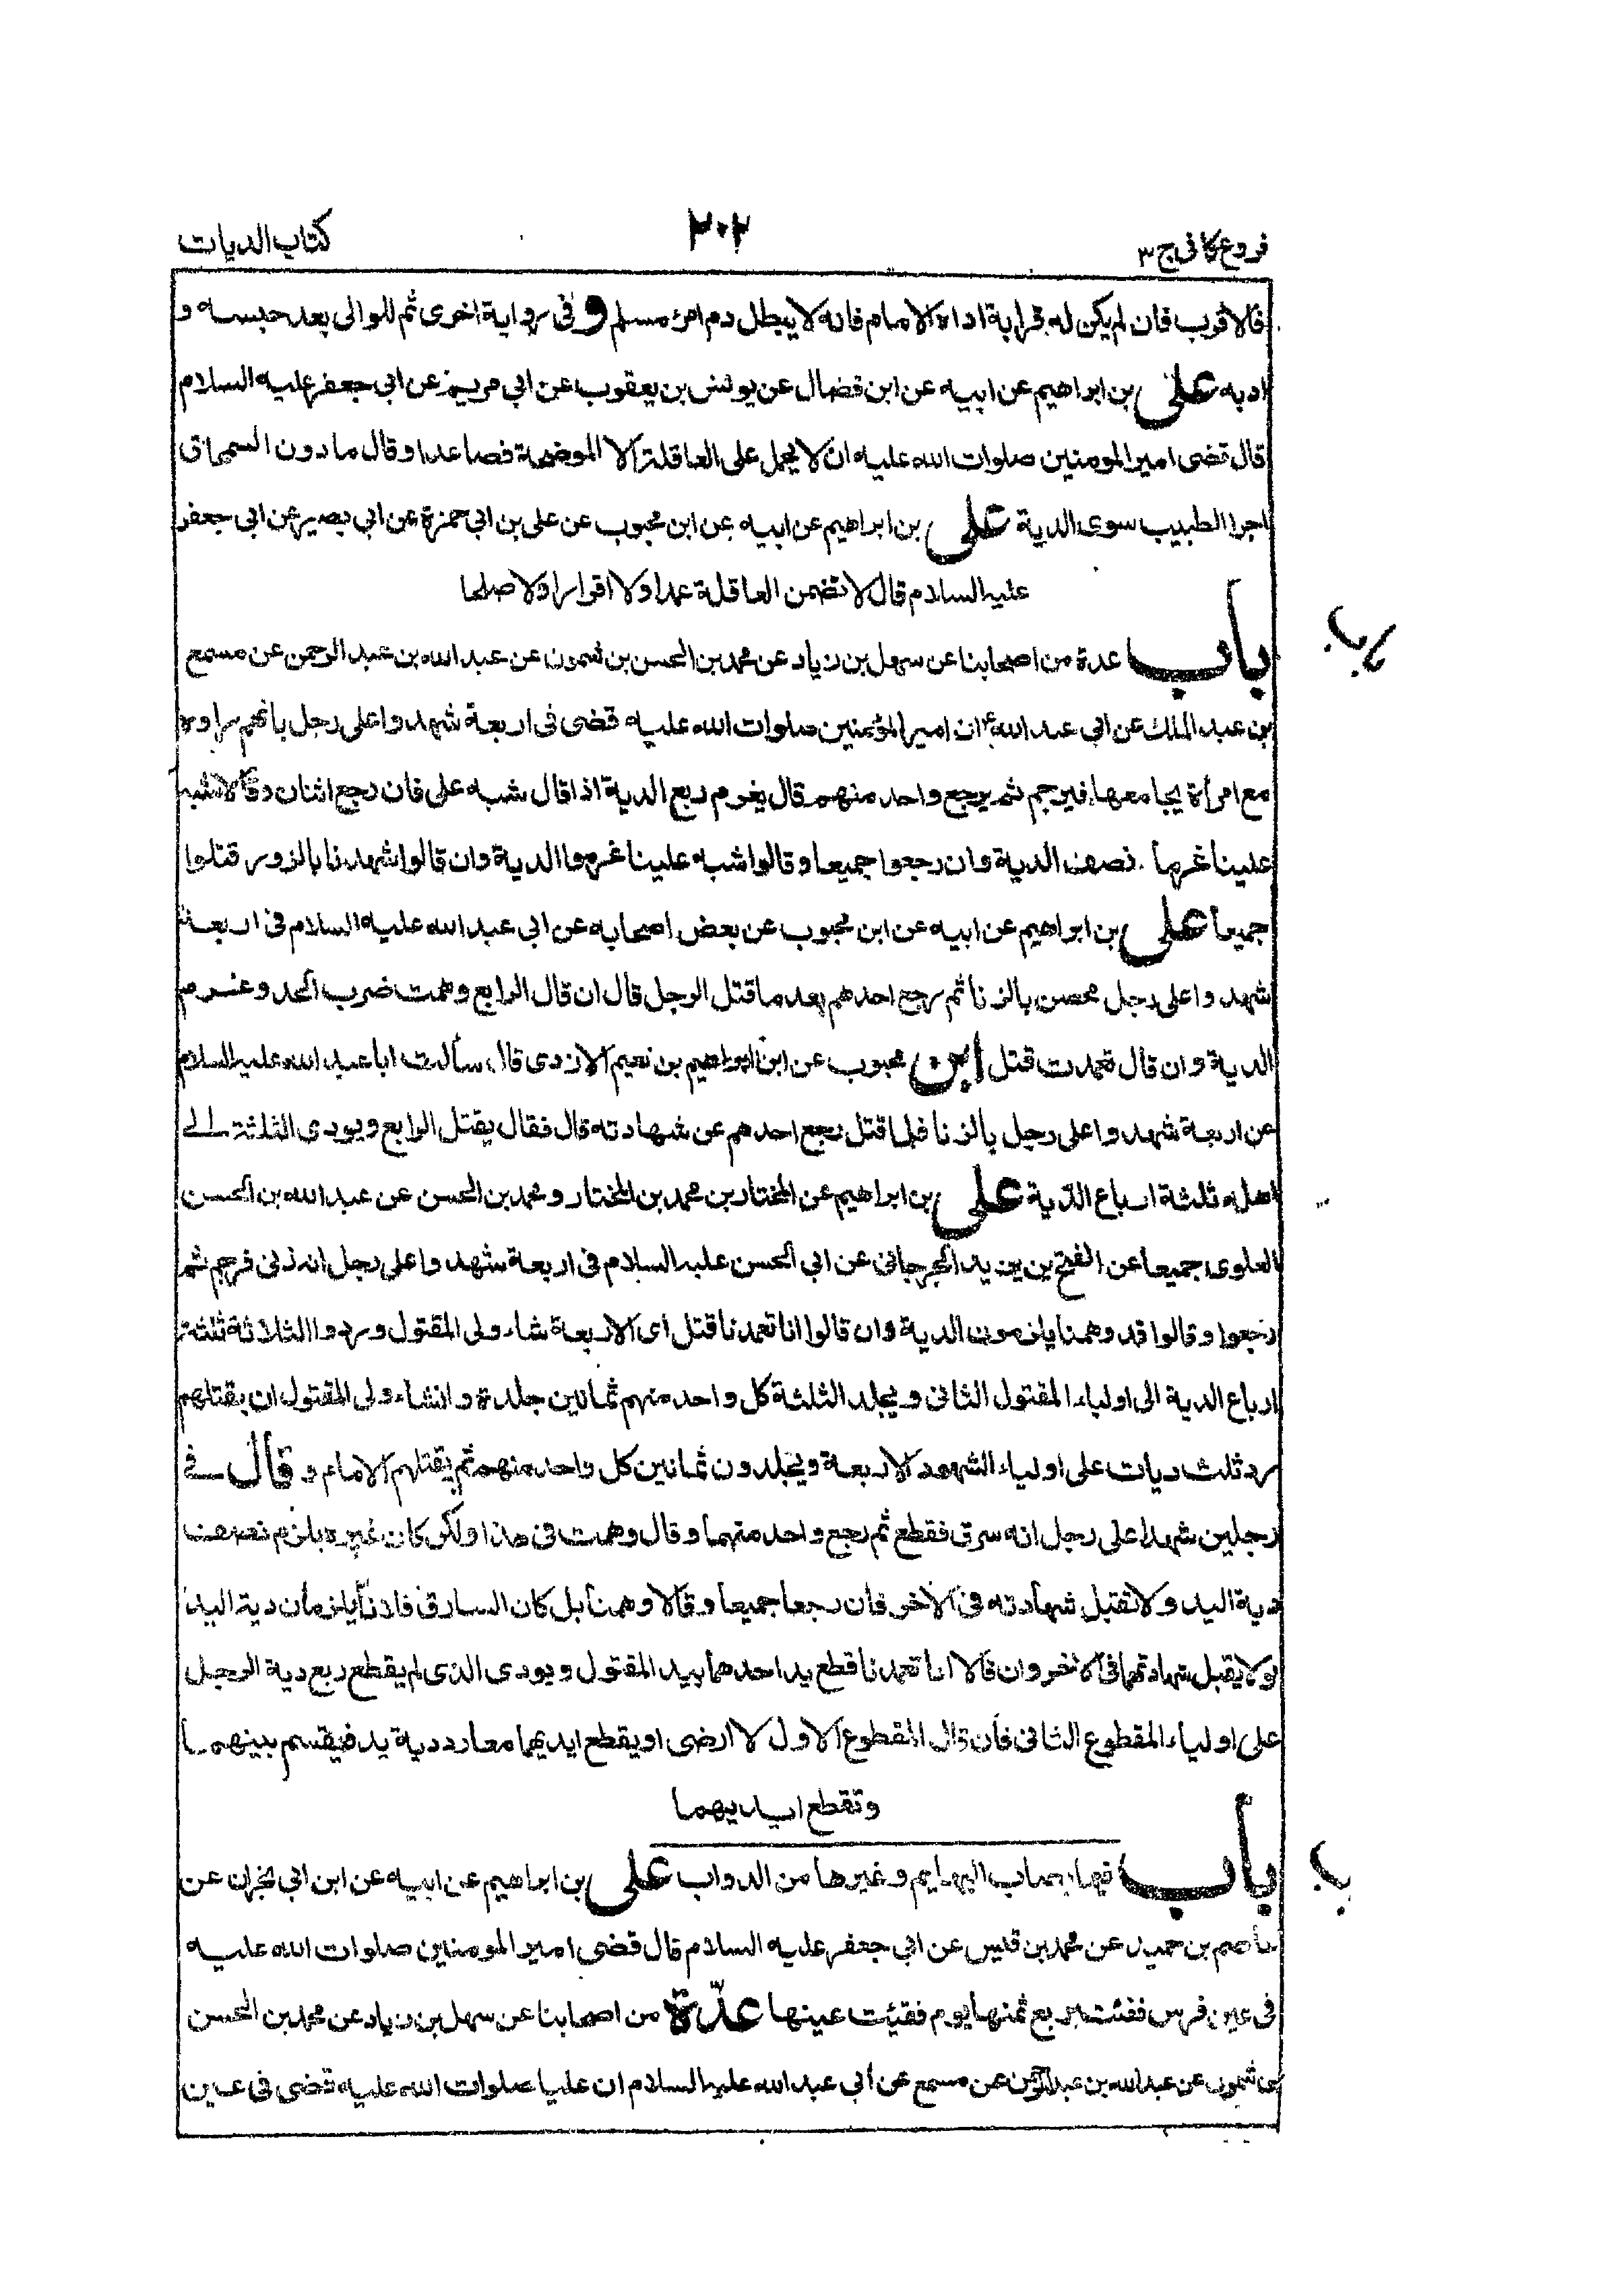 فروع كافى ج ٣
٢٠٢
كتاب الديات
فالاقرب فان لم يكن له قرابة اداه الامام فانه لا يبطل دم امرء مسلم و فى رواية اخرى ثم للوالى بعد حبسه و
ادبه على بن ابراهيم عن ابيه عن ابن فضال عن يونس بن يعقوب عن ابي مريم عن ابي جعفر عليه السلام
قال قضى امير المومنين صلوات الله عليه ان لا يحمل على العاقلة الا الموضحة فصاعدا و قال ما دون السمحاق
اجر الطبيب سوى الدية على بن ابراهيم عن ابيه عن ابن محبوب عن على بن ابي حمزة عن ابي بصير عن ابي جعفر
عليه السلام قال لا تضمن العاقلة عمدا ولا اقرارا ولا صلحا
باب عدة من اصحابنا عن سهل بن زياد عن محمد بن الحسن بن شمون عن عبد الله بن عبد الرحمن عن مسمع
بن عبد الملك عن ابي عبد الله ع ان امير المؤمنين صلوات الله عليه قضى فى اربعة شهدوا على رجل بانهم راوه
مع امرأة يجامعها فيرجم ثم يرجع واحد منهم قال يغرم ربع الدية اذا قال شبه على فان رجع اثنان وقالا شبه
علينا غرما نصف الدية وان رجعوا جميعا وقالوا شبه علينا غرموا الدية وان قالوا شهدنا بالزور قتلوا
جميعا على بن ابراهيم عن ابيه عن ابن محبوب عن بعض اصحابه عن ابي عبد الله عليه السلام فى اربعة
شهدوا على رجل محصن بالزنا ثم رجع احدهم بعد ما قتل الرجل قال ان قال الرابع وهمت ضرب الحد وغرم
الدية وان قال تعمدت قتل ابن محبوب عن ابن ابراهيم بن نعيم الازدى قال سألت ابا عبد الله عليه السلام
عن اربعة شهدوا على رجل بالزنا فلما قتل رجع احدهم عن شهادته قال فقال يقتل الرابع ويودى الثلثة الى
اهله ثلثة ارباع الدية على بن ابراهيم عن المختار بن محمد بن المختار و محمد بن الحسن عن عبد الله بن الحسن
العلوى جميعا عن الفتح بن يزيد الجرجانى عن ابي الحسن عليه السلام فى اربعة شهدوا على رجل انه زنى فرجم ثم
رجعوا وقالوا قد وهمنا يلزمون الدية وان قالوا انا تعمدنا قتل اى الاربعة شاء ولى المقتول وردوا الثلاثة ثلثة
ارباع الدية الى اولياء المقتول الثانى ويجلد الثلثة كل واحد منهم ثمانين جلدة وانشاء ولى المقتول ان يقتلهم
رد ثلث ديات على اولياء الشهود الاربعة ويجلدون ثمانين كل واحد منهم ثم يقتلهم الامام و قال فى
رجلين شهدا على رجل انه سرق فقطع ثم رجع واحد منهما وقال وهمت فى هذا ولكن كان غيره يلزم نصف
دية اليد ولا تقبل شهادته فى الاخر فان رجعا جميعا وقالا وهمنا بل كان السارق فلانا يلزمان دية اليد
ولا يقبل شهادتهما فى الاخر وان قالا انا تعمدنا قطع يد احدهما بيد المقتول ويودى الذى لم يقطع ربع دية الرجل
على اولياء المقطوع الثانى فان قال المقطوع الاول لا ارضى او يقطع ايديهما معا رد دية يد فيقسم بينهما
وتقطع ايديهما
باب فيما يصاب البهايم وغيرها من الدواب على بن ابراهيم عن ابيه عن ابن ابي نجران عن
عاصم بن حميد عن محمد بن قيس عن ابي جعفر عليه السلام قال قضى امير المومنين صلوات الله عليه
فى عين فرس فقئت بربع ثمنها يوم فقيئت عينها عدّة من اصحابنا عن سهل بن زياد عن محمد بن الحسن
بن شمون عن عبد الله بن عبد الرحمن عن مسمع عن أبي عبد الله عليه السلام ان عليا صلوات الله عليه قضى فى عين